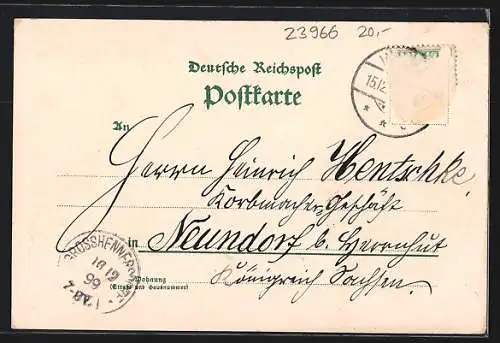 Z3966 20,-
Deutsche Reichspost
Postkarte
An
Herrn Heinrich Hentschke,
Korbmacher Geschäft
in Neundorf b. Herrnhut
Königreich Sachsen.
Wohnung
(Straße und Hausnummer)
15.12.
GROSSHENNERSDORF
16 12
99